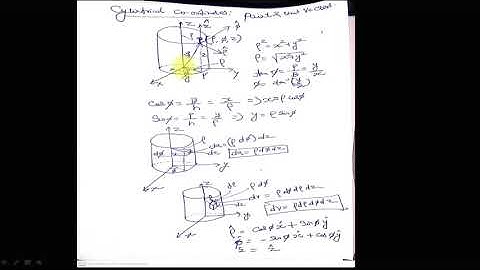 Cylindrical Co-ordinates: Point & Unit Vector
z
P(ρ, φ, z)
ρ² = x²+y²
ρ = √x²+y²
tanφ = P/B = y/x
φ = tan⁻¹(y/x)
y
x
Cosφ = B/h = x/ρ => x = ρ cosφ
Sinφ = P/h = y/ρ => y = ρ sinφ
z
ρ
da = (ρ dφ) dz
dz
da = ρ dφ dz
y
x
z
dρ
ρ dφ
dv = ρ dφ dρ dz
dz
dv = ρ dρ dφ dz
y
x
ρ̂ = cosφ x̂ + sinφ ŷ
φ̂ = - sinφ x̂ + cosφ ŷ
ẑ = ẑ